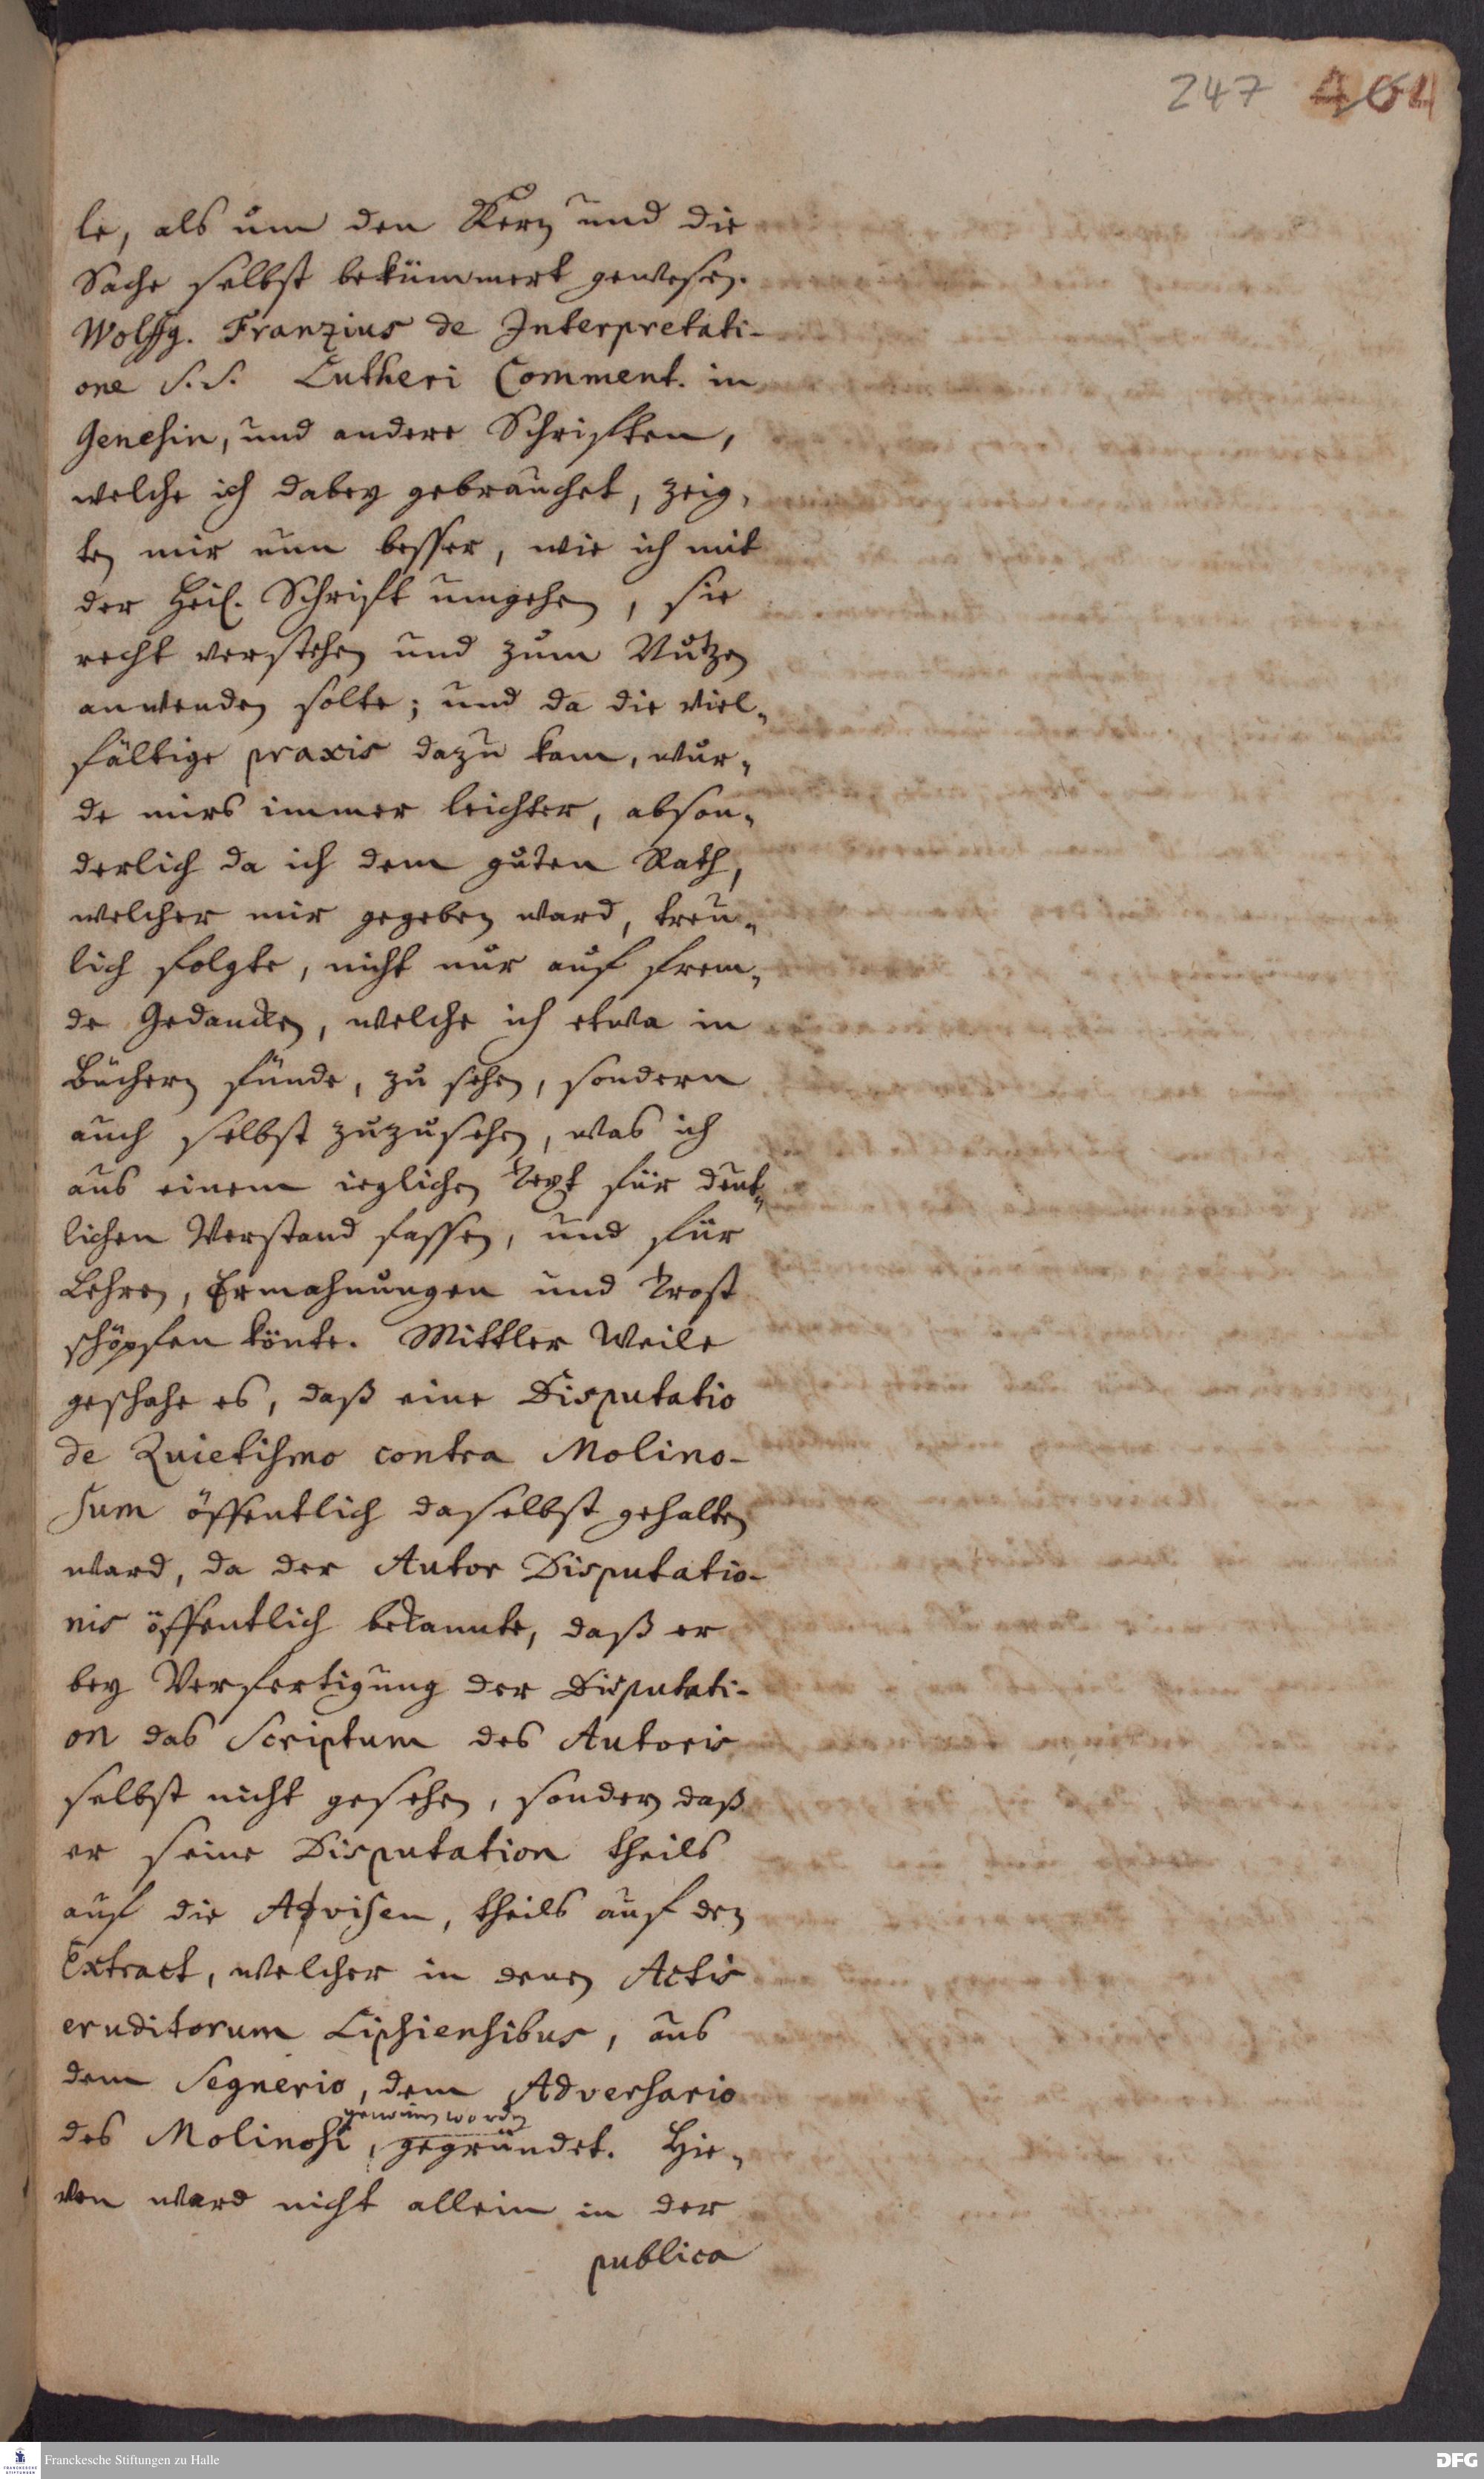 247 464
le, als um den Kern und die
Sache selbst bekümmert gewesen.
Wolffg. Franzius de Interpretati-
one S. S. Lutheri Comment. in
Genesin, und andere Schrifften,
welche ich dabey gebrauchet, zeig-
ten mir nun besser, wie ich mit
der Heil. Schrifft umgehen, sie
recht verstehen und zum Nutzen
anwenden solte; und da die viel-
fältige praxis dazu kam, wur-
de mirs immer leichter, abson-
derlich da ich dem guten Rath,
welcher mir gegeben ward, treu-
lich folgte, nicht nur auf frem-
de Gedancken, welche ich etwa in
Büchern fünde, zu sehen, sondern
auch selbst zuzusehen, was ich
aus einem ieglichen Text für deut-
lichen Verstand fassen, und für
Lehren, Ermahnungen und Trost
schöpfen könte. Mittler Weile
geschahe es, daß eine Disputatio
de Quietismo contra Molino-
sum öffentlich daselbst gehalten
ward, da der Autor Disputatio-
nis öffentlich bekannte, daß er
bey Verfertigung der Disputati-
on das Scriptum des Autoris
selbst nicht gesehen, sondern daß
er seine Disputation theils
auf die Advisen, theils auf den
Extract, welcher in denen Actis
eruditorum Lipsiensibus, aus
dem Segnerio, dem Adversario
genomen worden
des Molinosi, gegründet. Hie-
von ward nicht allein in der
publica
Franckesche Stiftungen zu Halle
DFG